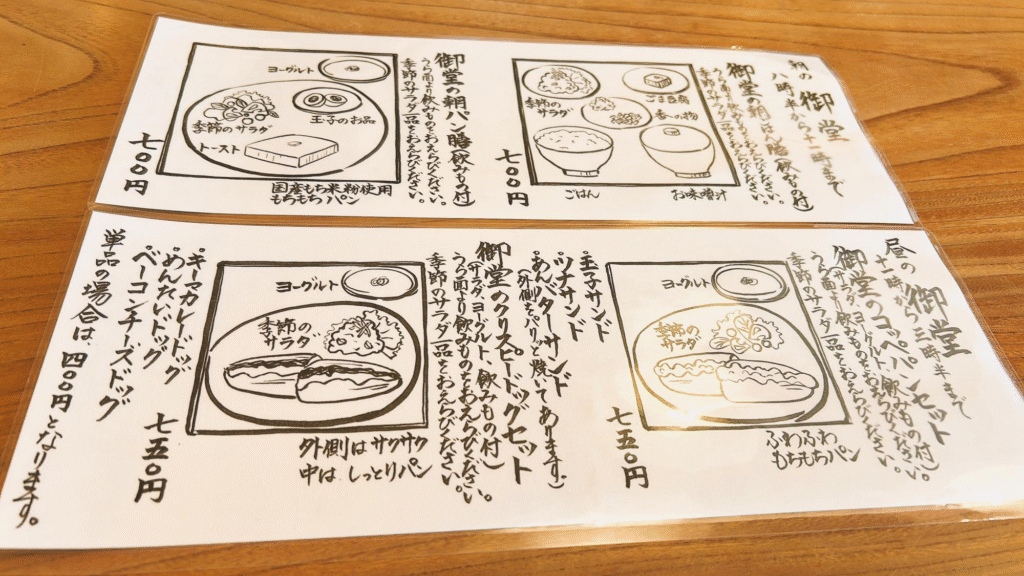 朝の御堂
八時半から十一時まで
御堂の朝ごはん膳(飲みもの付)
うら面より飲みものをおえらびください。
季節のサラダ一品をおえらびください。
季節の
サラダ
ごま豆腐
香の物
ごはん
お味噌汁
七〇〇円
御堂の朝パン膳(飲みもの付)
うら面より飲みものをおえらびください。
季節のサラダ一品をおえらびください。
ヨーグルト
玉子のお品
季節のサラダ
トースト
国産もち米粉使用
もちもちパン
七〇〇円
昼の御堂
十一時から三時半まで
御堂のコッペパンセット
(サラダ、ヨーグルト、飲みもの付)
うら面より飲みものをおえらびください。
季節のサラダ一品をおえらびください。
ヨーグルト
季節の
サラダ
ふわふわ
もちもちパン
玉子サンド
ツナサンド
あんバターサンド
(外側をパリッと焼いてあります。)
七五〇円
御堂のクリスピードッグセット
(サラダ、ヨーグルト、飲みもの付)
うら面より飲みものをおえらびください。
季節のサラダ一品をおえらびください。
ヨーグルト
季節の
サラダ
外側はサクサク
中は しっとりパン
キーマカレードッグ
めんたいドッグ
ベーコンチーズドッグ
七五〇円
単品の場合は 四〇〇円となります。